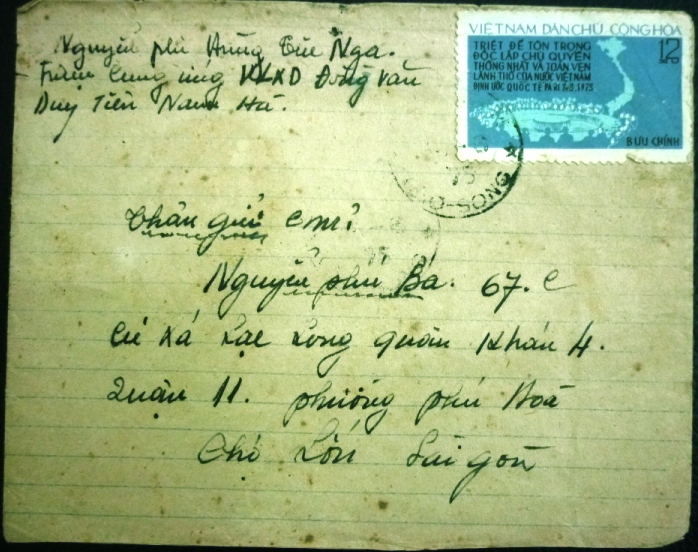 Nguyễn phú Hùng Tuê Nga.
Trạm Cung ứng VLXD Đồng Văn
Duy Tiên Nam Hà.
VIỆT NAM DÂN CHỦ CỘNG HÒA
TRIỆT ĐỂ TÔN TRỌNG
ĐỘC LẬP CHỦ QUYỀN
THỐNG NHẤT VÀ TOÀN VẸN
LÃNH THỔ CỦA NƯỚC VIỆT NAM
ĐỊNH ƯỚC QUỐC TẾ PARI
12
BƯU CHÍNH
75
Thân gửi
Nguyễn phú Bá. 67. C
Cư xá Lạc Long quân Khán 4.
Quận 11. phường phú Hoà
Chợ Lớn Sài gòn